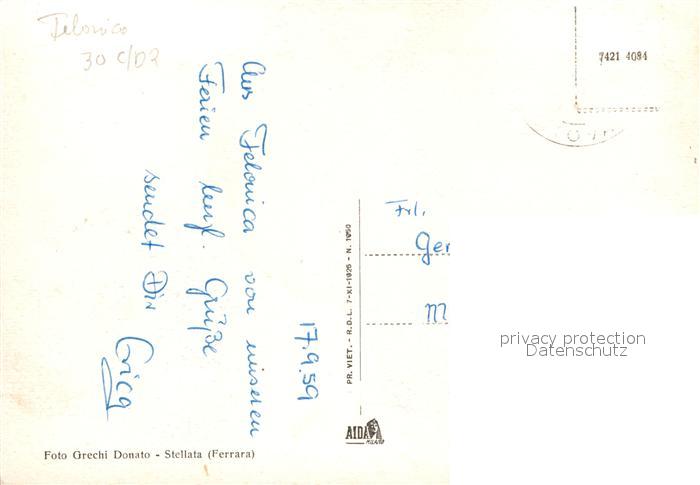 Felonica
30 C/D2
7421 4084
17.9.59
Aus Felonica von unseren
Ferien herzl. Grüße
sendet Dir
Erica
PR. VIET. - R.D.L. 7-XI-1925 - N. 1050
Frl.
Ger
M
privacy protection
Datenschutz
AIDA
MILANO
Foto Grechi Donato - Stellata (Ferrara)